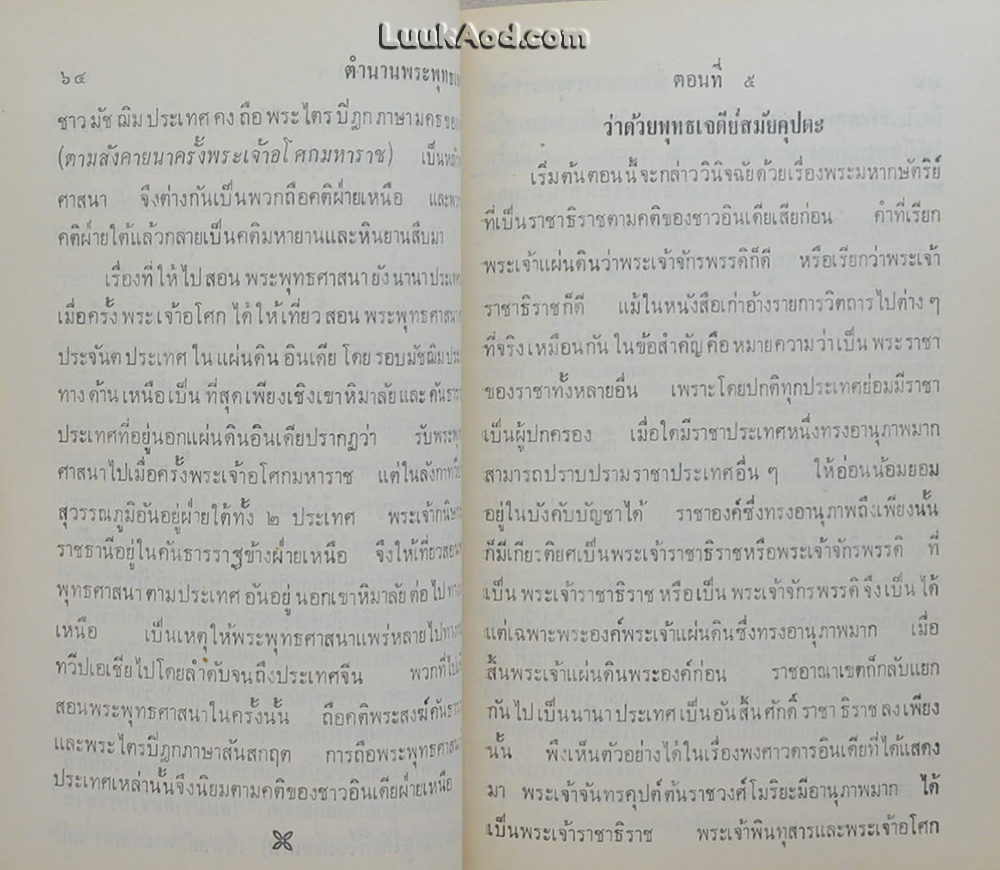 LuukAod.com
๖๔ ตำนานพระพุทธเจ
ชาวมัชฌิมประเทศคงถือพระไตรปิฎกภาษามคธของ
(ตามสังคายนาครั้งพระเจ้าอโศกมหาราช) เป็นหลัก
ศาสนา จึงต่างกันเป็นพวกถือคติฝ่ายเหนือ และพวก
คติฝ่ายใต้แล้วกลายเป็นคติมหายานและหินยานสืบมา
เรื่องที่ให้ไปสอนพระพุทธศาสนายังนานาประเทศ
เมื่อครั้งพระเจ้าอโศก ได้ให้เที่ยวสอนพระพุทธศาสนา
ประจันตประเทศในแผ่นดินอินเดีย โดยรอบมัชฌิมประ
ทางด้านเหนือเป็นที่สุดเพียงเชิงเขาหิมาลัยและคันธาร
ประเทศที่อยู่นอกแผ่นดินอินเดียปรากฏว่า รับพระพุ
ศาสนาไปเมื่อครั้งพระเจ้าอโศกมหาราช แต่ในลังกาทวีป
สุวรรณภูมิอันอยู่ฝ่ายใต้ทั้ง ๒ ประเทศ พระเจ้ากนิษ
ราชธานีอยู่ในคันธารราฐข้างฝ่ายเหนือ จึงให้เที่ยวสอน
พุทธศาสนาตามประเทศอันอยู่นอกเขาหิมาลัยต่อไปทาง
เหนือ เป็นเหตุให้พระพุทธศาสนาแพร่หลายไปทาง
ทวีปเอเชียไปโดยลำดับจนถึงประเทศจีน พวกที่ไป
สอนพระพุทธศาสนาในครั้งนั้น ถือคติพระสงฆ์คันธาร
และพระไตรปิฎกภาษาสันสกฤต การถือพระพุทธศาสนา
ประเทศเหล่านั้นจึงนิยมตามคติของชาวอินเดียฝ่ายเหนือ
ตอนที่ ๕
ว่าด้วยพุทธเจดีย์สมัยคุปตะ
เริ่มต้นตอนนี้จะกล่าววินิจฉัยด้วยเรื่องพระมหากษัตริย์
ที่เป็นราชาธิราชตามคติของชาวอินเดียเสียก่อน คำที่เรียก
พระเจ้าแผ่นดินว่าพระเจ้าจักรพรรดิก็ดี หรือเรียกว่าพระเจ้า
ราชาธิราชก็ดี แม้ในหนังสือเก่าอ้างรายการวิตถารไปต่าง ๆ
ที่จริงเหมือนกันในข้อสำคัญ คือหมายความว่าเป็นพระราชา
ของราชาทั้งหลายอื่น เพราะโดยปกติทุกประเทศย่อมมีราชา
เป็นผู้ปกครอง เมื่อใดมีราชาประเทศหนึ่งทรงอานุภาพมาก
สามารถปราบปรามราชาประเทศอื่น ๆ ให้อ่อนน้อมยอม
อยู่ในบังคับบัญชาได้ ราชาองค์ซึ่งทรงอานุภาพถึงเพียงนั้น
ก็มีเกียรติยศเป็นพระเจ้าราชาธิราชหรือพระเจ้าจักรพรรดิ ที่
เป็นพระเจ้าราชาธิราชหรือเป็นพระเจ้าจักรพรรดิจึงเป็นได้
แต่เฉพาะพระองค์พระเจ้าแผ่นดินซึ่งทรงอานุภาพมาก เมื่อ
สิ้นพระเจ้าแผ่นดินพระองค์ก่อน ราชอาณาเขตก็กลับแยก
กันไปเป็นนานาประเทศเป็นอันสิ้นศักดิ์ราชาธิราชลงเพียง
นั้น พึงเห็นตัวอย่างได้ในเรื่องพงศาวดารอินเดียที่ได้แสดง
มา พระเจ้าจันทรคุปต์ต้นราชวงศ์โมริยะมีอานุภาพมาก ได้
เป็นพระเจ้าราชาธิราช พระเจ้าพินทุสารและพระเจ้าอโศก